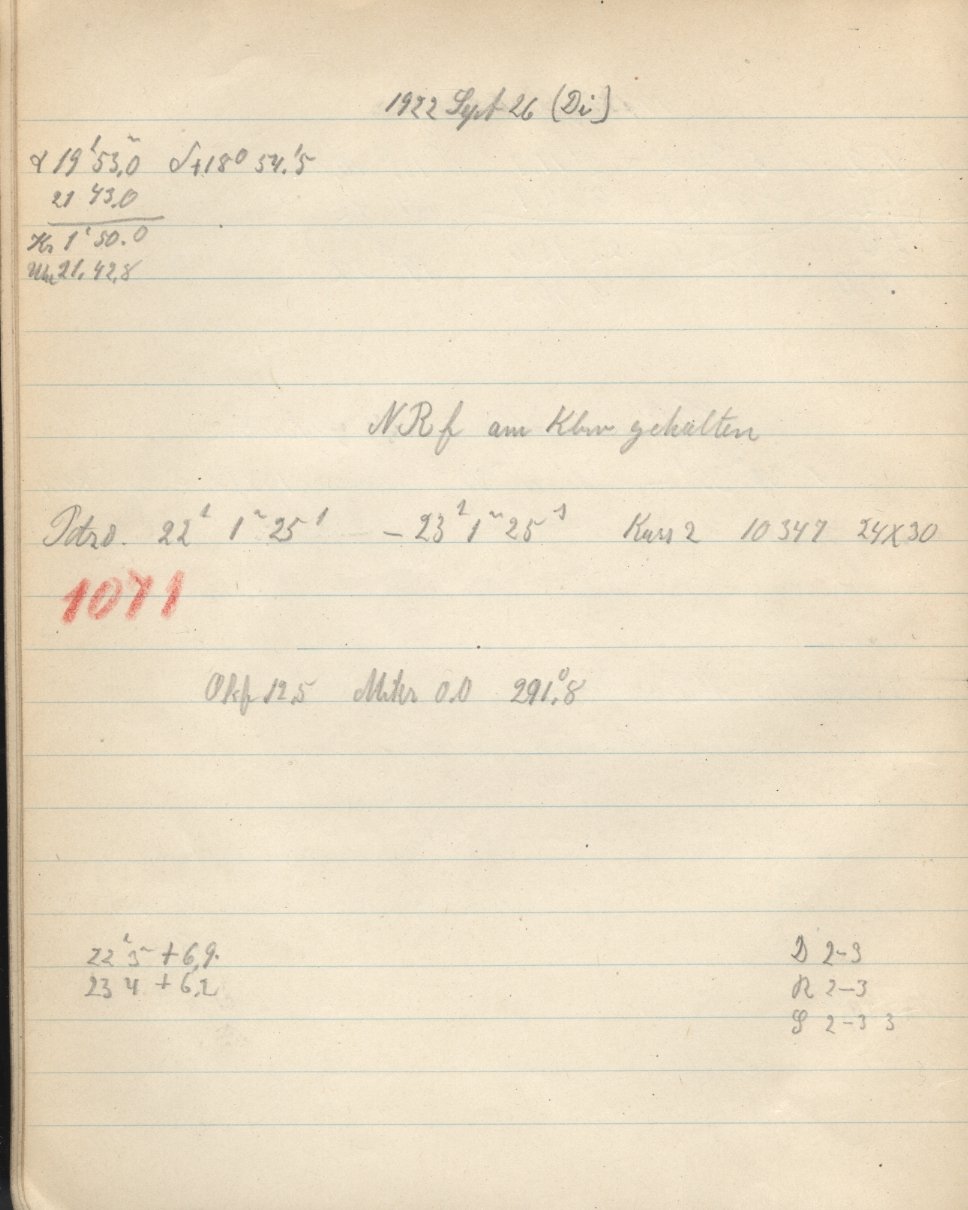 1922 Sept 26 (Di)
α 19ʰ 53ᵐ,0 δ +18° 54,'5
21 43,0
Kr 1ʰ 50.0
Uhr 21, 42,8
NRf am gehalten
22ʰ 1ᵐ 25ˢ – 23ʰ 1ᵐ 25ˢ Kass 2 10347 24x30
1071
Okf 12.5 Mikr 0.0 291,°8
22ʰ 5ᵐ + 6,9.
23 4 + 6,2
D 2-3
R 2-3
S 2-3 3